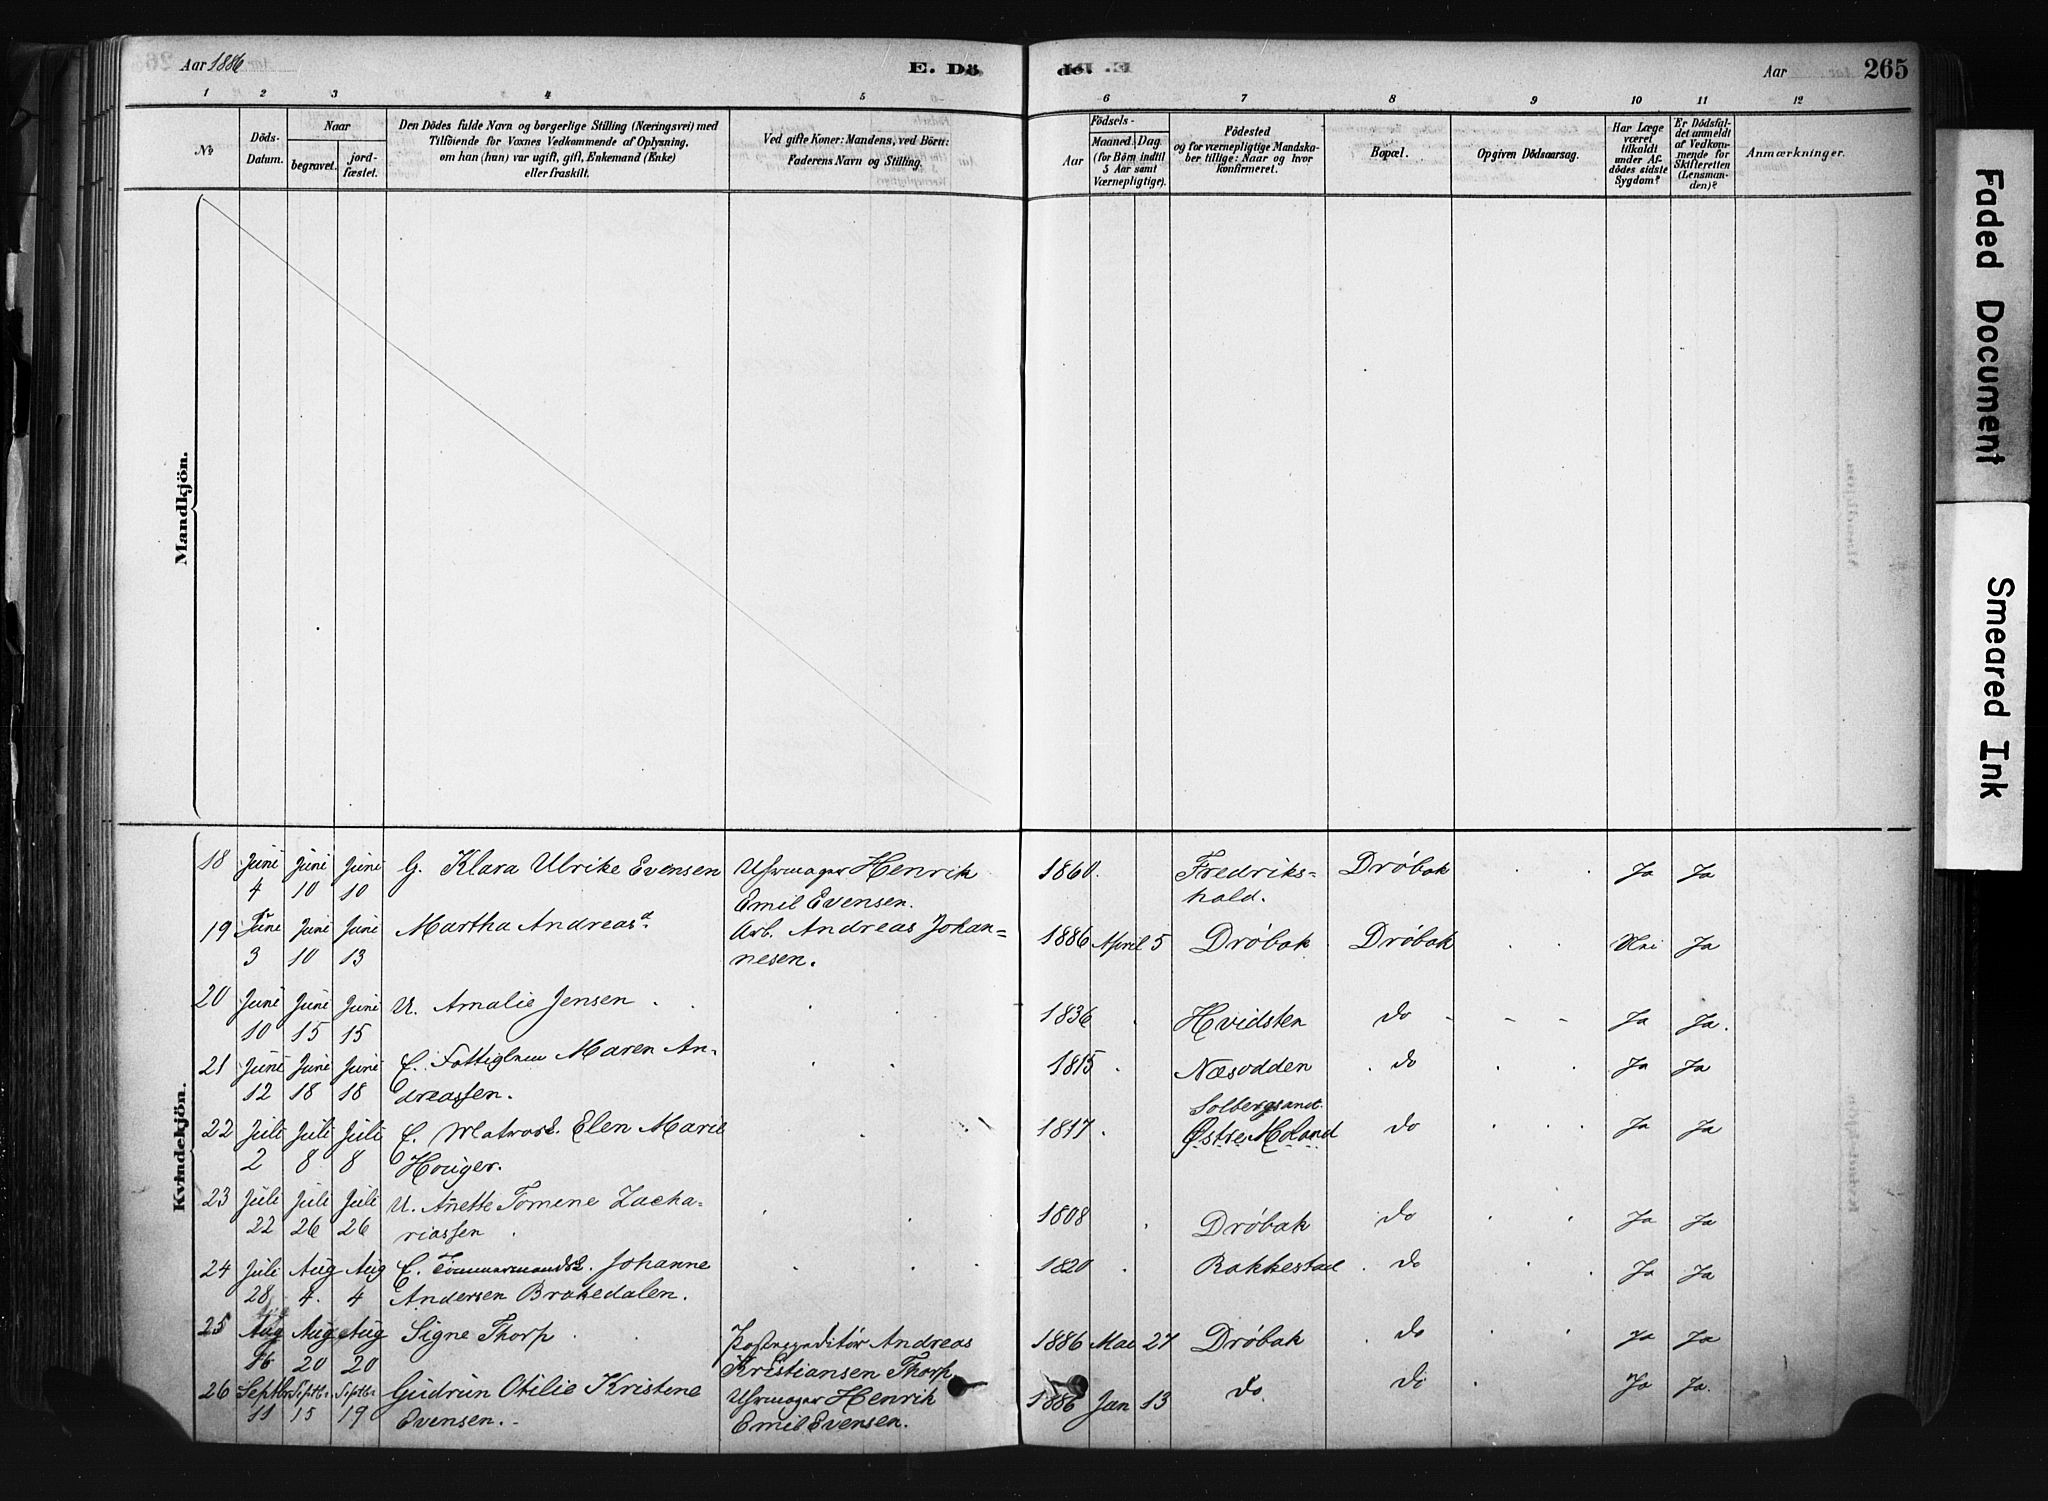 Aar 1886
E. Dö
de. E.
Aar
265
1 2 3 4 5 6 7 8 9 10 11 12
№
Döds-
Datum.
Naar
begravet.
jord-
fæstet.
Den Dödes fulde Navn og borgerlige Stilling (Næringsvei) med
Tilföiende for Voxnes Vedkommende af Oplysning,
om han (hun) var ugift, gift, Enkemand (Enke)
eller fraskilt.
Ved gifte Koner: Mandens, ved Börn:
Faderens Navn og Stilling.
Födsels-
Aar
Maaned. Dag.
(for Börn indtil
5 Aar samt
Værnepligtige).
Födested
og for værnepligtige Mandska-
ber tillige: Naar og hvor
konfirmeret.
Bopæl.
Opgiven Dödsaarsag.
Har Læge
været
tilkaldt
under Af-
dödes sidste
Sygdom?
Er Dödsfal-
det anmeldt
af Vedkom-
mende for
Skifteretten
(Lensman-
den)?
Anmærkninger.
Mandkjön.
Kvindekjön.
18 Juni Juni Juni G. Klara Ulrike Evensen Uhrmager Henrik 1860. Fredriks= Drøbak Ja Ja
4 10 10 Emil Evensen. hald.
19 Juni Juni Juni Martha Andreasd. Arb. Andreas Johan= 1886 April 5 Drøbak Drøbak Nei Ja
3 10 13 nesen.
20 Juni Juni Juni U. Amalie Jensen 1836 Hvidsten do Ja Ja.
10 15 15
21 Juni Juni Juni E. Fattiglem Maren An- 1815 Næsodden do Ja Ja
12 18 18 dreassen.
22 Juli Juli Juli E. Matros E. Elen Marie 1817 Solbergsand. Østre Moland do Ja Ja
2 8 8 Houger.
23 Juli Juli Juli U. Anette Tomine Zacha- 1808 Drøbak do Ja Ja
22 26 26 riassen
24 Juli Aug Aug E. Tömmermandse. Johanne 1820 Rakkestad do Ja Ja
28 4. 4 Andersen Brakedalen.
25 Aug Aug Aug Signe Thorp Postexpeditör Andreas 1886 Mai 27 Drøbak do Ja Ja
16 20 20 Kristiansen Thorp
26 Septbr Septbr Septbr Gudrun Otilie Kristine Uhrmager Henrik 1886 Jan 13 do. do Ja Ja.
11 15 19 Evensen. Emil Evensen.
Faded Document
Smeared Ink